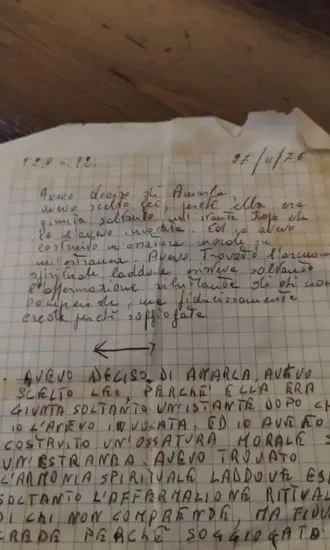 27/11/76
Avevo deciso di Amarla,
avevo scelto lei, perché ella era
giunta soltanto un istante dopo che
io l'avevo invocata. Ed io avevo
costruito un'ossatura morale su
un'estranea. Avevo trovato l'armonia
spirituale laddove esisteva soltanto
l'affermazione di chi non
comprende, ma fiduciosamente
crede perché soggiogata
. AVEVO DECISO DI AMARLA, AVEVO
SCELTO LEI PERCHÉ ELLA ERA
GIUNTA SOLTANTO UN ISTANTE DOPO CH
IO L'AVEVO INVOCATA. ED IO AVEVO
COSTRUITO UN'OSSATURA MORALE S
UN'ESTRANEA. AVEVO TROVATO
L'ARMONIA SPIRITUALE LADDOVE ESI
SOLTANTO L'AFFERMAZIONE
DI CHI NON COMPRENDE, MA FIDU
CREDE PERCHÉ SOGGIOGATA